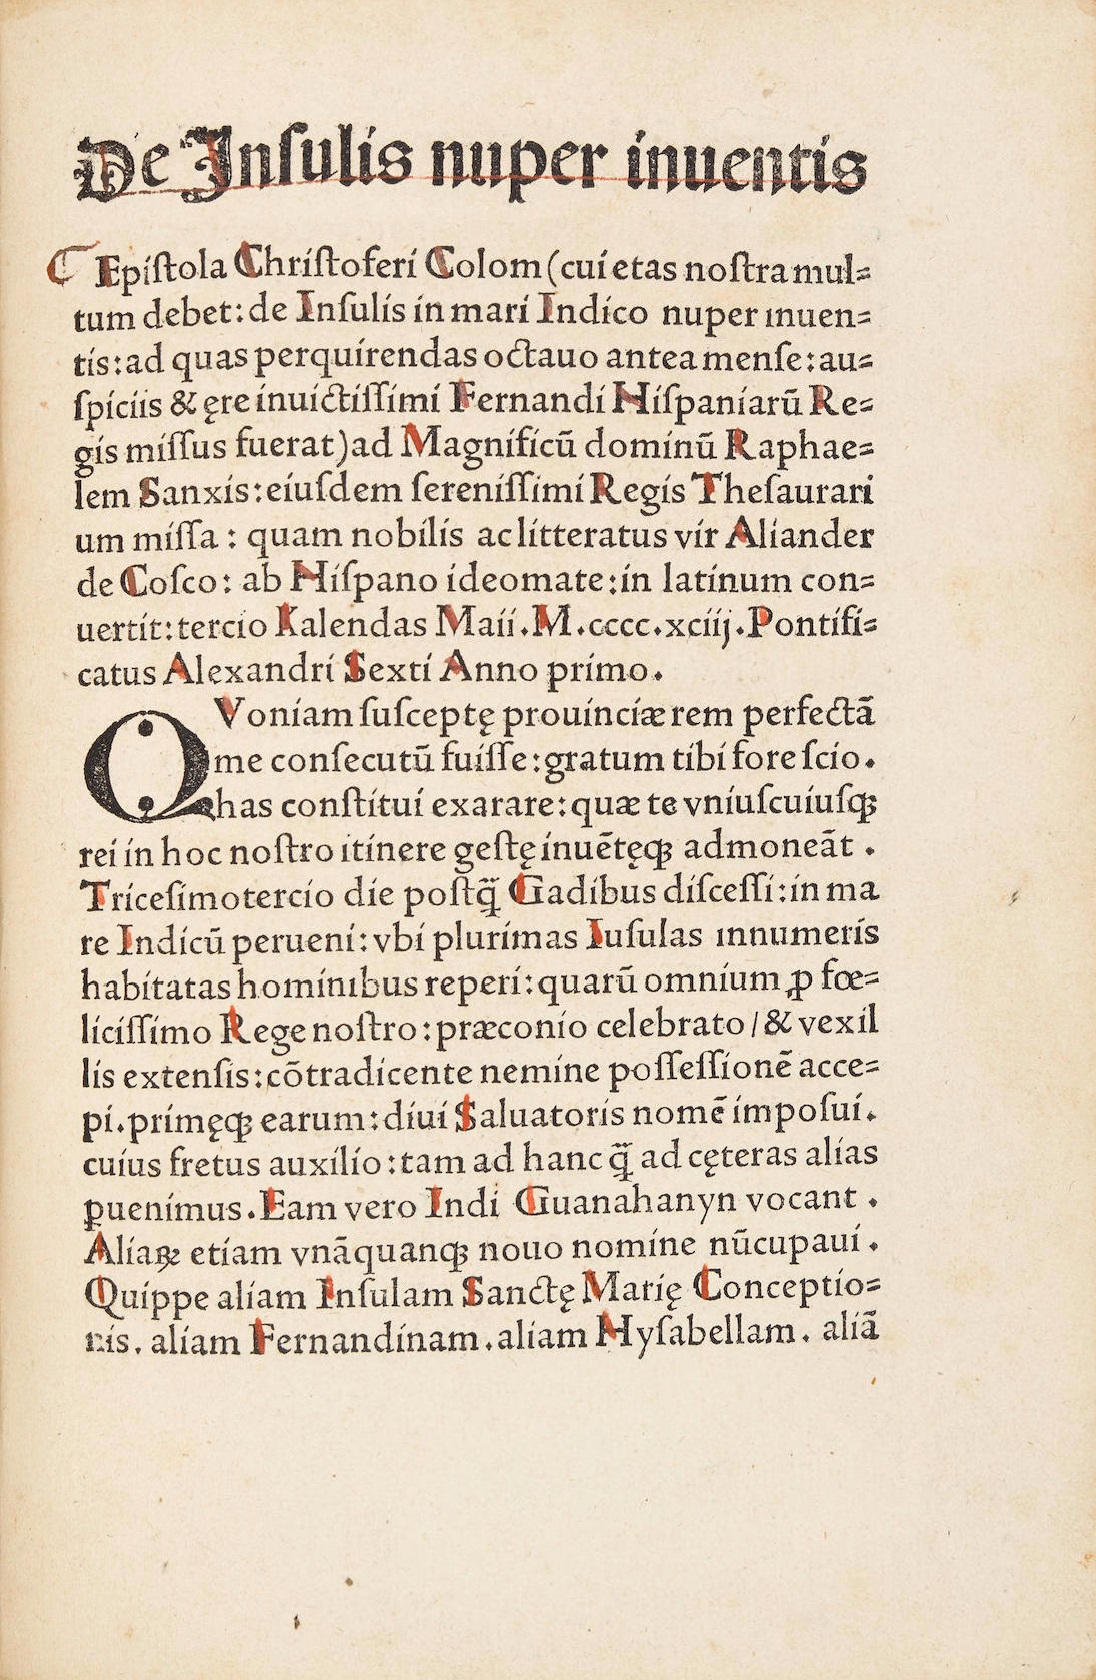 De Inſulis nuper inuentis
Epiſtola Chriſtoferi Colom (cui etas noſtra mul⸗
tum debet: de Inſulis in mari Indico nuper inuen⸗
tis: ad quas perquirendas octauo antea menſe: au⸗
ſpiciis & ęre inuictiſſimi Fernandi Hiſpaniarū Re⸗
gis miſſus fuerat) ad Magnificū dominū Raphae⸗
lem Sanxis: eiuſdem ſereniſſimi Regis Theſaurari
um miſſa: quam nobilis ac litteratus vir Aliander
de Coſco: ab Hiſpano ideomate: in latinum con⸗
uertit: tercio Kalendas Maii. M.cccc.xciij. Pontifi⸗
catus Alexandri Sexti Anno primo.
QVoniam ſuſceptę prouinciæ rem perfectā
me conſecutū fuiſſe: gratum tibi fore ſcio.
has conſtitui exarare: quæ te vniuſcuiuſqꝫ
rei in hoc noſtro itinere geſtę inuētęqꝫ admoneāt.
Triceſimotercio die poſtq̃ Gadibus diſceſſi: in ma
re Indicū perueni: vbi plurimas Iuſulas innumeris
habitatas hominibus reperi: quarū omnium ꝓ fœ⸗
liciſſimo Rege noſtro: præconio celebrato / & vexil
lis extenſis: cōtradicente nemine poſſeſſionē acce⸗
pi. primęqꝫ earum: diui Saluatoris nomē impoſui.
cuius fretus auxilio: tam ad hanc q̃ ad cęteras alias
ꝑuenimus. Eam vero Indi Guanahanyn vocant.
Aliaꝝ etiam vnāquanqꝫ nouo nomine nūcupaui.
Quippe aliam Inſulam Sanctę Marię Conceptio⸗
nis. aliam Fernandinam. aliam Hyſabellam. aliā